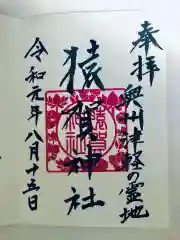 奉拝
奥州津軽の霊地
猿賀神社
令和元年八月十五日